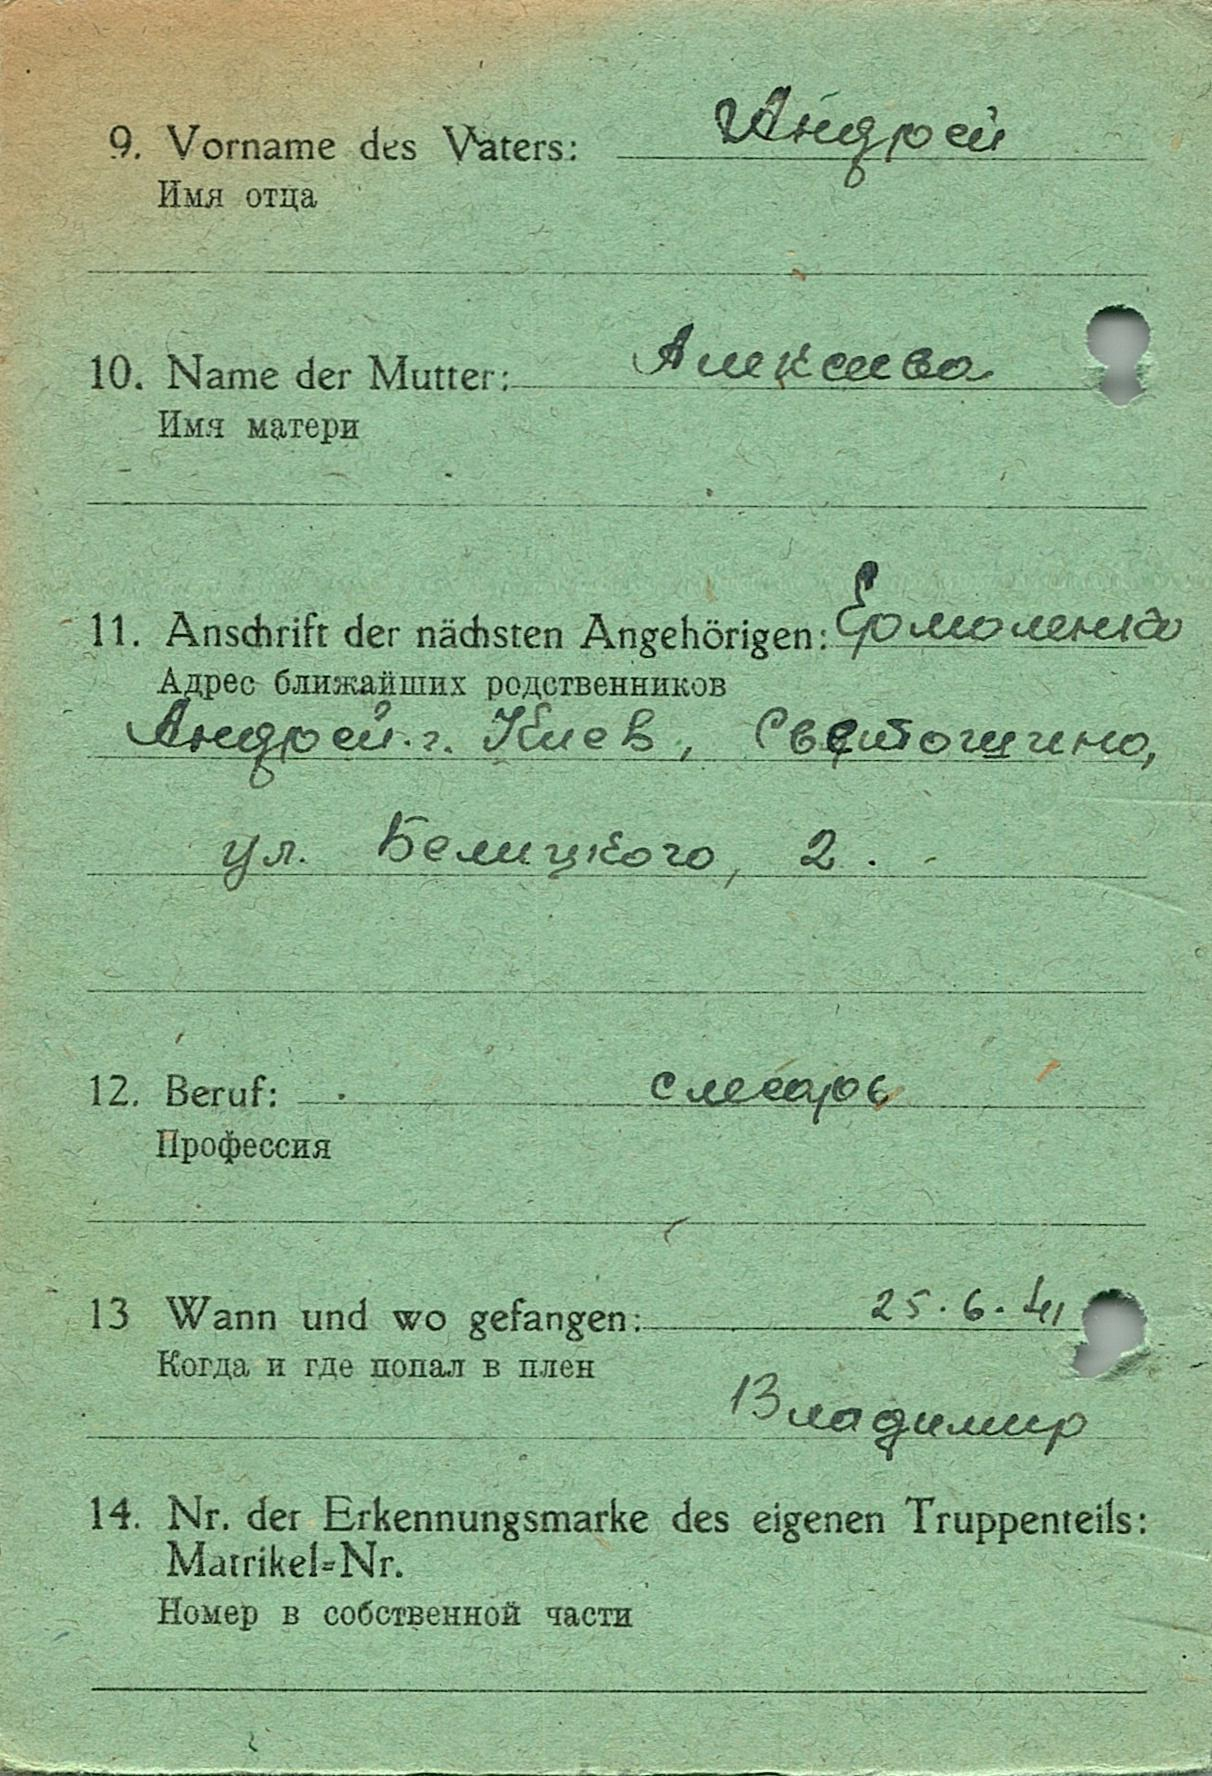 9. Vorname des Vaters: Андрей
Имя отца
10. Name der Mutter: Алексиева
Имя матери
11. Anschrift der nächsten Angehörigen: Ермоленко
Адрес ближайших родственников
Андрей. г. Киев, Святошино,
ул. Белицкого, 2.
12. Beruf: слесарь
Профессия
13 Wann und wo gefangen: 25.6.41
Когда и где попал в плен
Владимир
14. Nr. der Erkennungsmarke des eigenen Truppenteils:
Matrikel=Nr.
Номер в собственной части